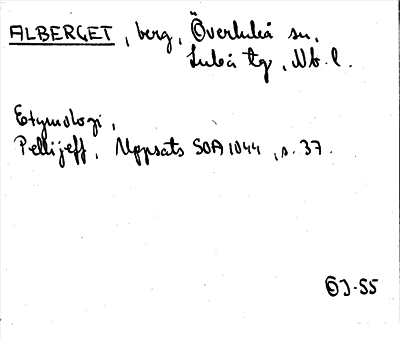 ALBERGET, berg, Överluleå sn,
Luleå tg, Nb. l.
Etymologi,
Pellijeff, Uppsats SOA 1044, s. 37.
ÖJ-55